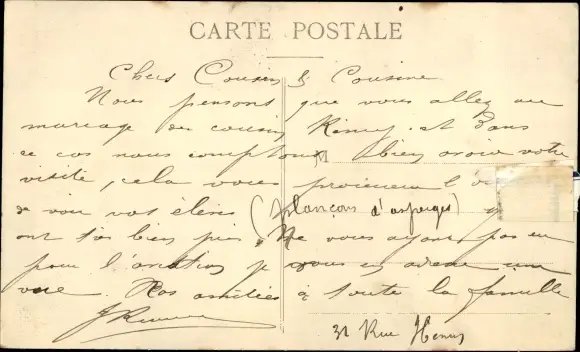 CARTE POSTALE
Chers Cousin & Cousine
Nous pensons que vous allez au
mariage du cousin Rémy et dans
ce cas nous comptons bien avoir votre
visite, cela vous
de voir vos élèves (plançons d'asperges)
ont très bien pris. Ne vous ayant pas eu
pour l' je vous en adresse une
vue. Nos amitiés à toute la famille
31 Rue